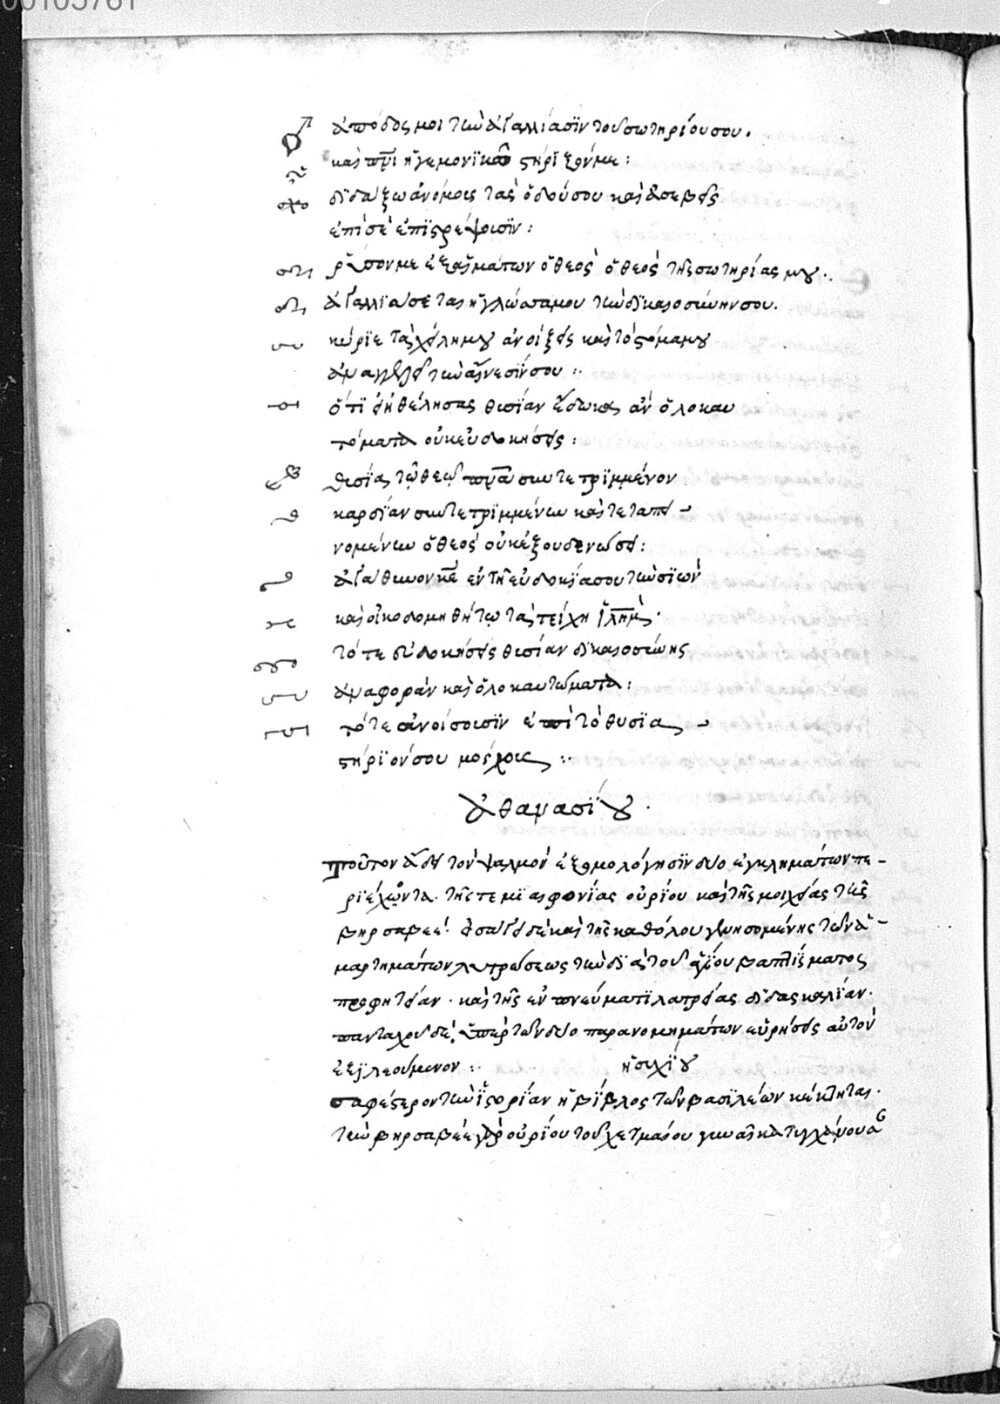 00105761
ἀπόδος μοι τὴν ἀγαλλίασϊν τοῦ σωτηρίου σου.
καὶ πνϊ ἡγεμονϊκῶ στήρϊξόν με:
διδάξω ἀνόμοις τὰς ὁδούς σου καὶ ἀσεβεῖς
ἐπὶ σὲ ἐπϊστρέψουσϊν:
ῥῦσον με ἐξ αἱμάτων ὁ θεὸς ὁ θεὸς τῆς σωτηρίας μου.
ἀγαλλϊάσεται ἡ γλώσσα μου τὴν δϊκαιοσύνην σου.
κύρϊε τὰ χείλη μου ἀνοίξεις καὶ τὸ στόμα μου
ἀναγγελεῖ τὴν αἴνεσίν σου:
ὅτϊ εἰ ἠθέλησας θυσίαν ἔδωκα ἂν ὁλοκαυ
τόματα οὐκ εὐδοκήσεις:
θυσία τῶ θεῶ πνα συντετρϊμμένον
καρδίαν συντετρϊμμένην καὶ τεταπει
νομένην ὁ θεὸς οὐκ ἐξουδενώσει:
ἀγάθυνον κε ἐν τῆ εὐδοκία σου τὴν σϊών
καὶ οἰκοδομηθήτω τὰ τείχη ϊλημ.
τότε εὐδοκήσεις θυσίαν δϊκαιοσύνης
ἀναφορὰν καὶ ὁλοκαυτώματα:
τότε ἀνοίσουσϊν ἐπὶ τὸ θυσϊα
στήρϊόν σου μόσχους:
ἀθανασίου.
τοῦτον ἄδει τὸν ψαλμὸν ἐξομολόγησϊν δύο ἐγκλημάτων πε
ρϊέχοντα. τῆς τε μϊαιφονίας οὐρίου καὶ τῆς μοιχείας τῆς
βηρσαβεέ. εἰσάγει δὲ καὶ τῆς καθόλου γενησομένης τῶν ἁ
μαρτημάτων λυτρώσεως τὴν δϊὰ τοῦ ἁγίου βαπτίσματος
προφητείαν. καὶ τῆς ἐν πνεύματϊ λατρείας δϊδασκαλίαν.
πανταχοῦ δὲ ὑπὲρ τῶν δύο παρανομημάτων εὑρήσεις αὐτὸν
ἐξϊλεούμενον: ἡσυχίου
σαφέστερον τὴν ἱστορίαν ἡ βίβλος τῶν βασϊλείων κέκτηται.
τὴν βηρσαβεὲ γὰρ οὐρίου τοῦ χετταίου γυναῖκα τυγχάνουσα